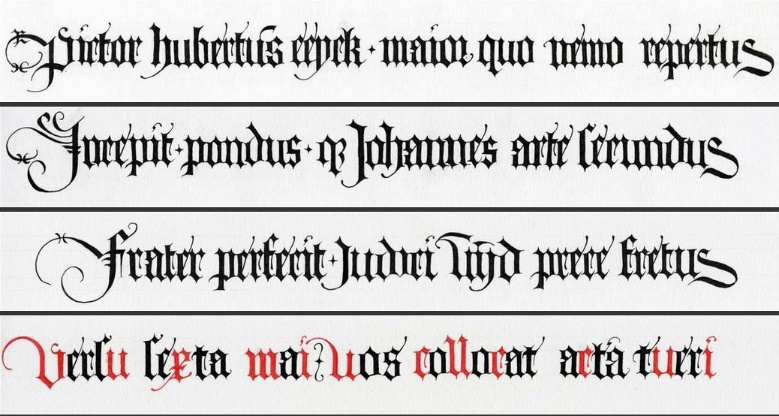 Pictor hubertus eeyck · maior quo nemo repertus
Incepit · pondus · qꝫ Johannes arte secundus
Frater perfecit · Judoci Vijd prece fretus
Versu sexta mai Vos collocat acta tueri